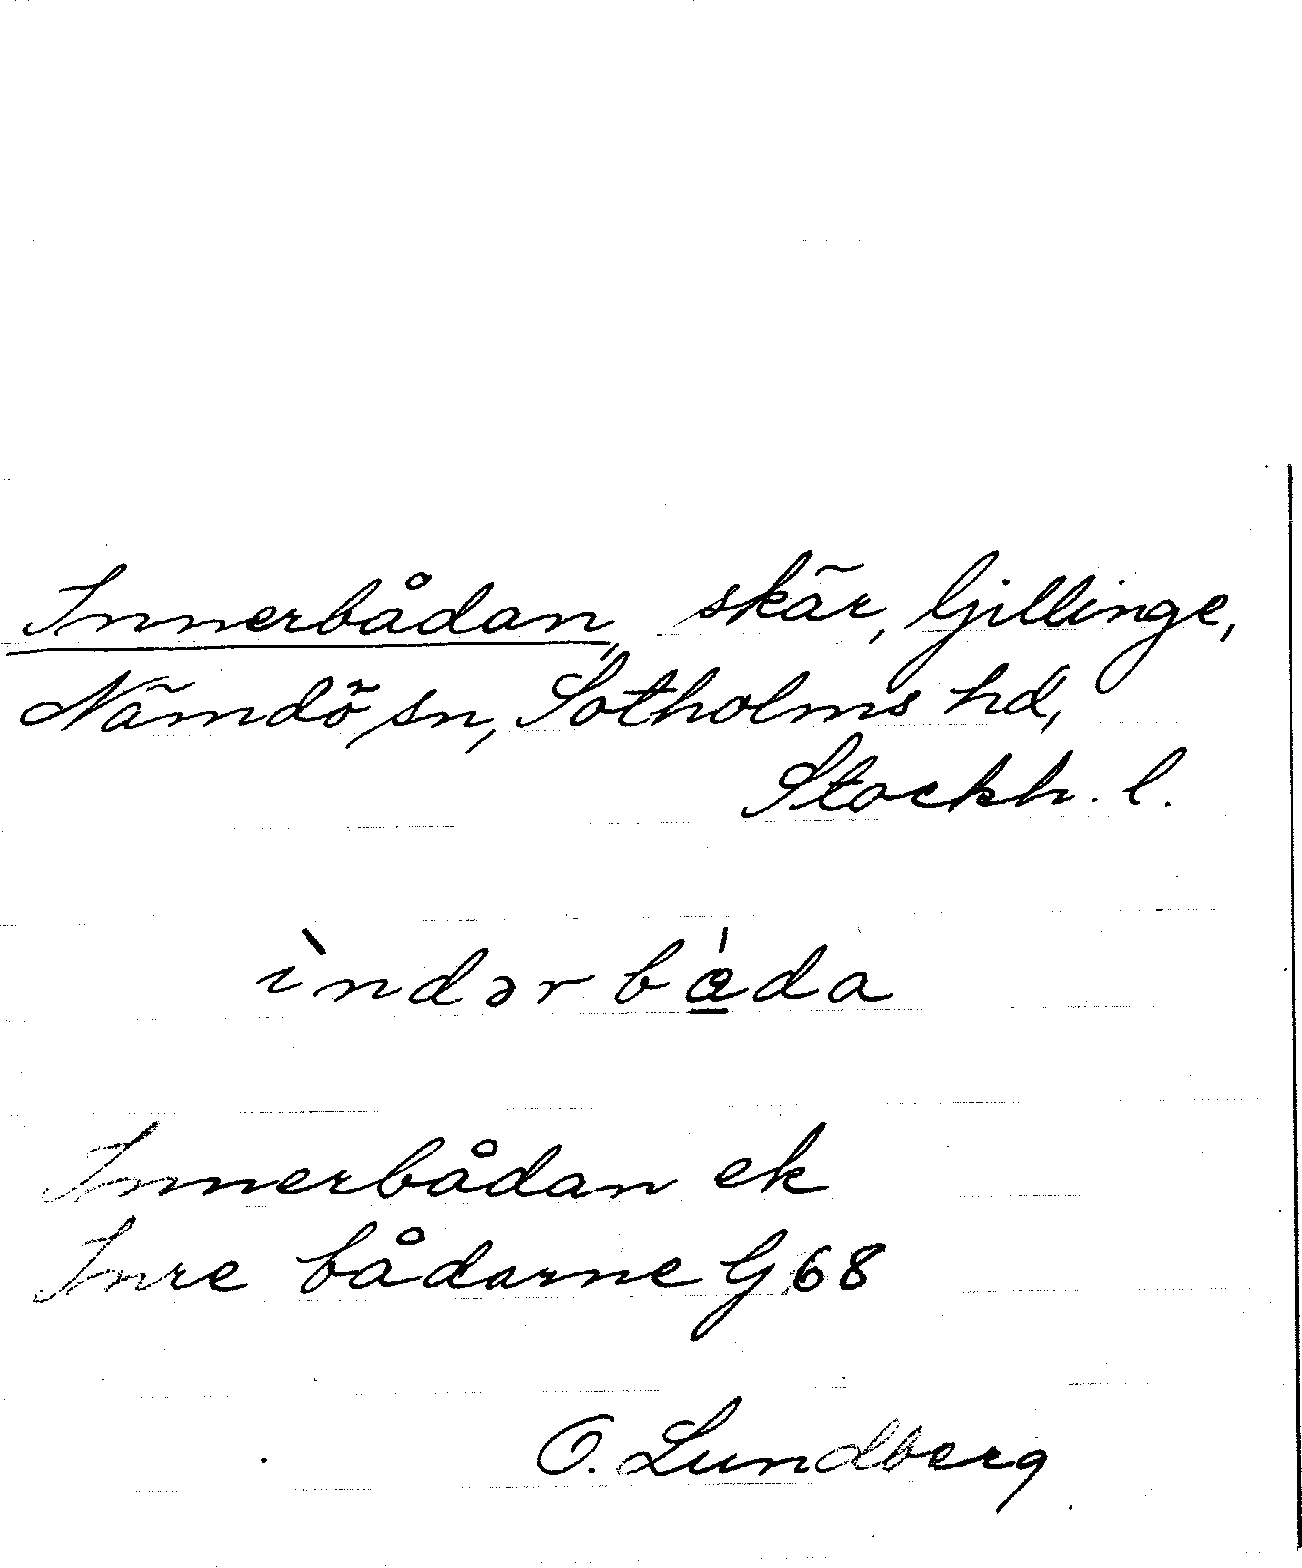 Innerbådan, skär, Gillinge,
Nämdö sn, Sotholms hd,
Stockh. l.
ìndərbа̲́da
Innerbådan ek
Inre bådarne G 68
O. Lundberg